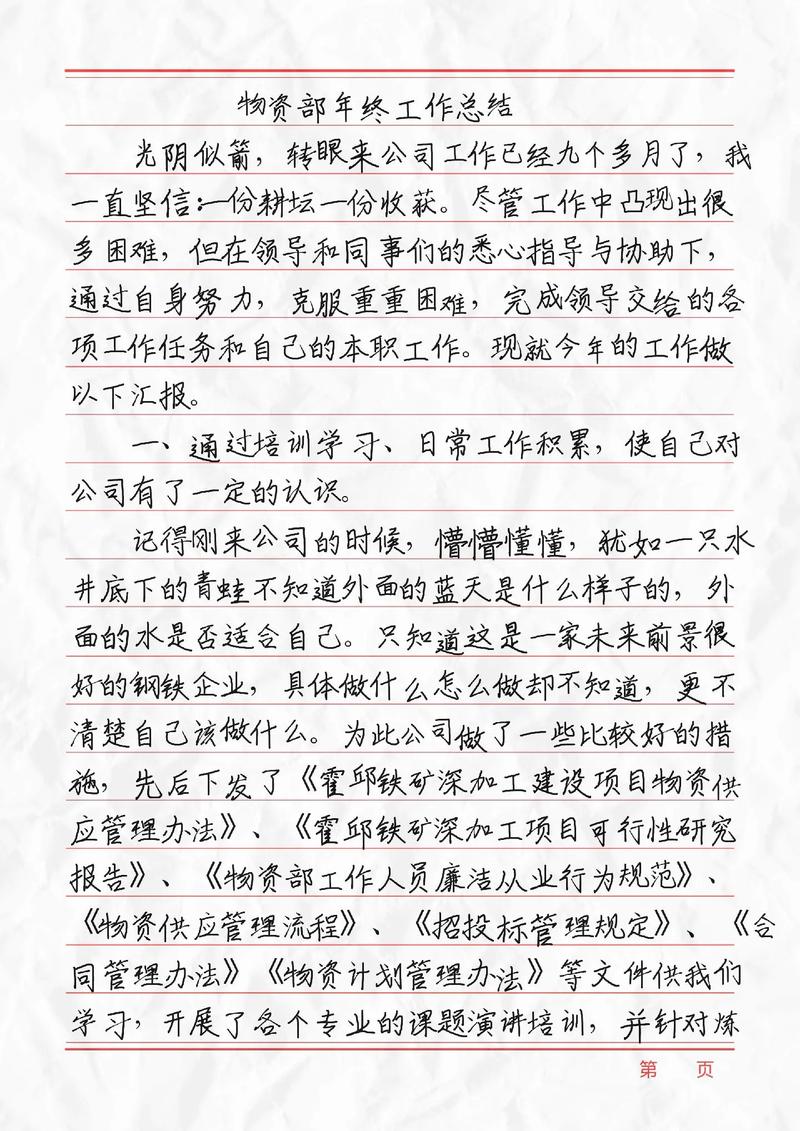 物资部年终工作总结
光阴似箭，转眼来公司工作已经九个多月了，我
一直坚信：一份耕坛一份收获。尽管工作中凸现出很
多困难，但在领导和同事们的悉心指导与协助下，
通过自身努力，克服重重困难，完成领导交给的各
项工作任务和自己的本职工作。现就今年的工作做
以下汇报。
一、通过培训学习、日常工作积累，使自己对
公司有了一定的认识。
记得刚来公司的时候，懵懵懂懂，犹如一只水
井底下的青蛙不知道外面的蓝天是什么样子的，外
面的水是否适合自己。只知道这是一家未来前景很
好的钢铁企业，具体做什么怎么做却不知道，更不
清楚自己该做什么。为此公司做了一些比较好的措
施，先后下发了《霍邱铁矿深加工建设项目物资供
应管理办法》、《霍邱铁矿深加工项目可行性研究
报告》、《物资部工作人员廉洁从业行为规范》、
《物资供应管理流程》、《招投标管理规定》、《合
同管理办法》《物资计划管理办法》等文件供我们
学习，开展了各个专业的课题演讲培训，并针对炼
第 页